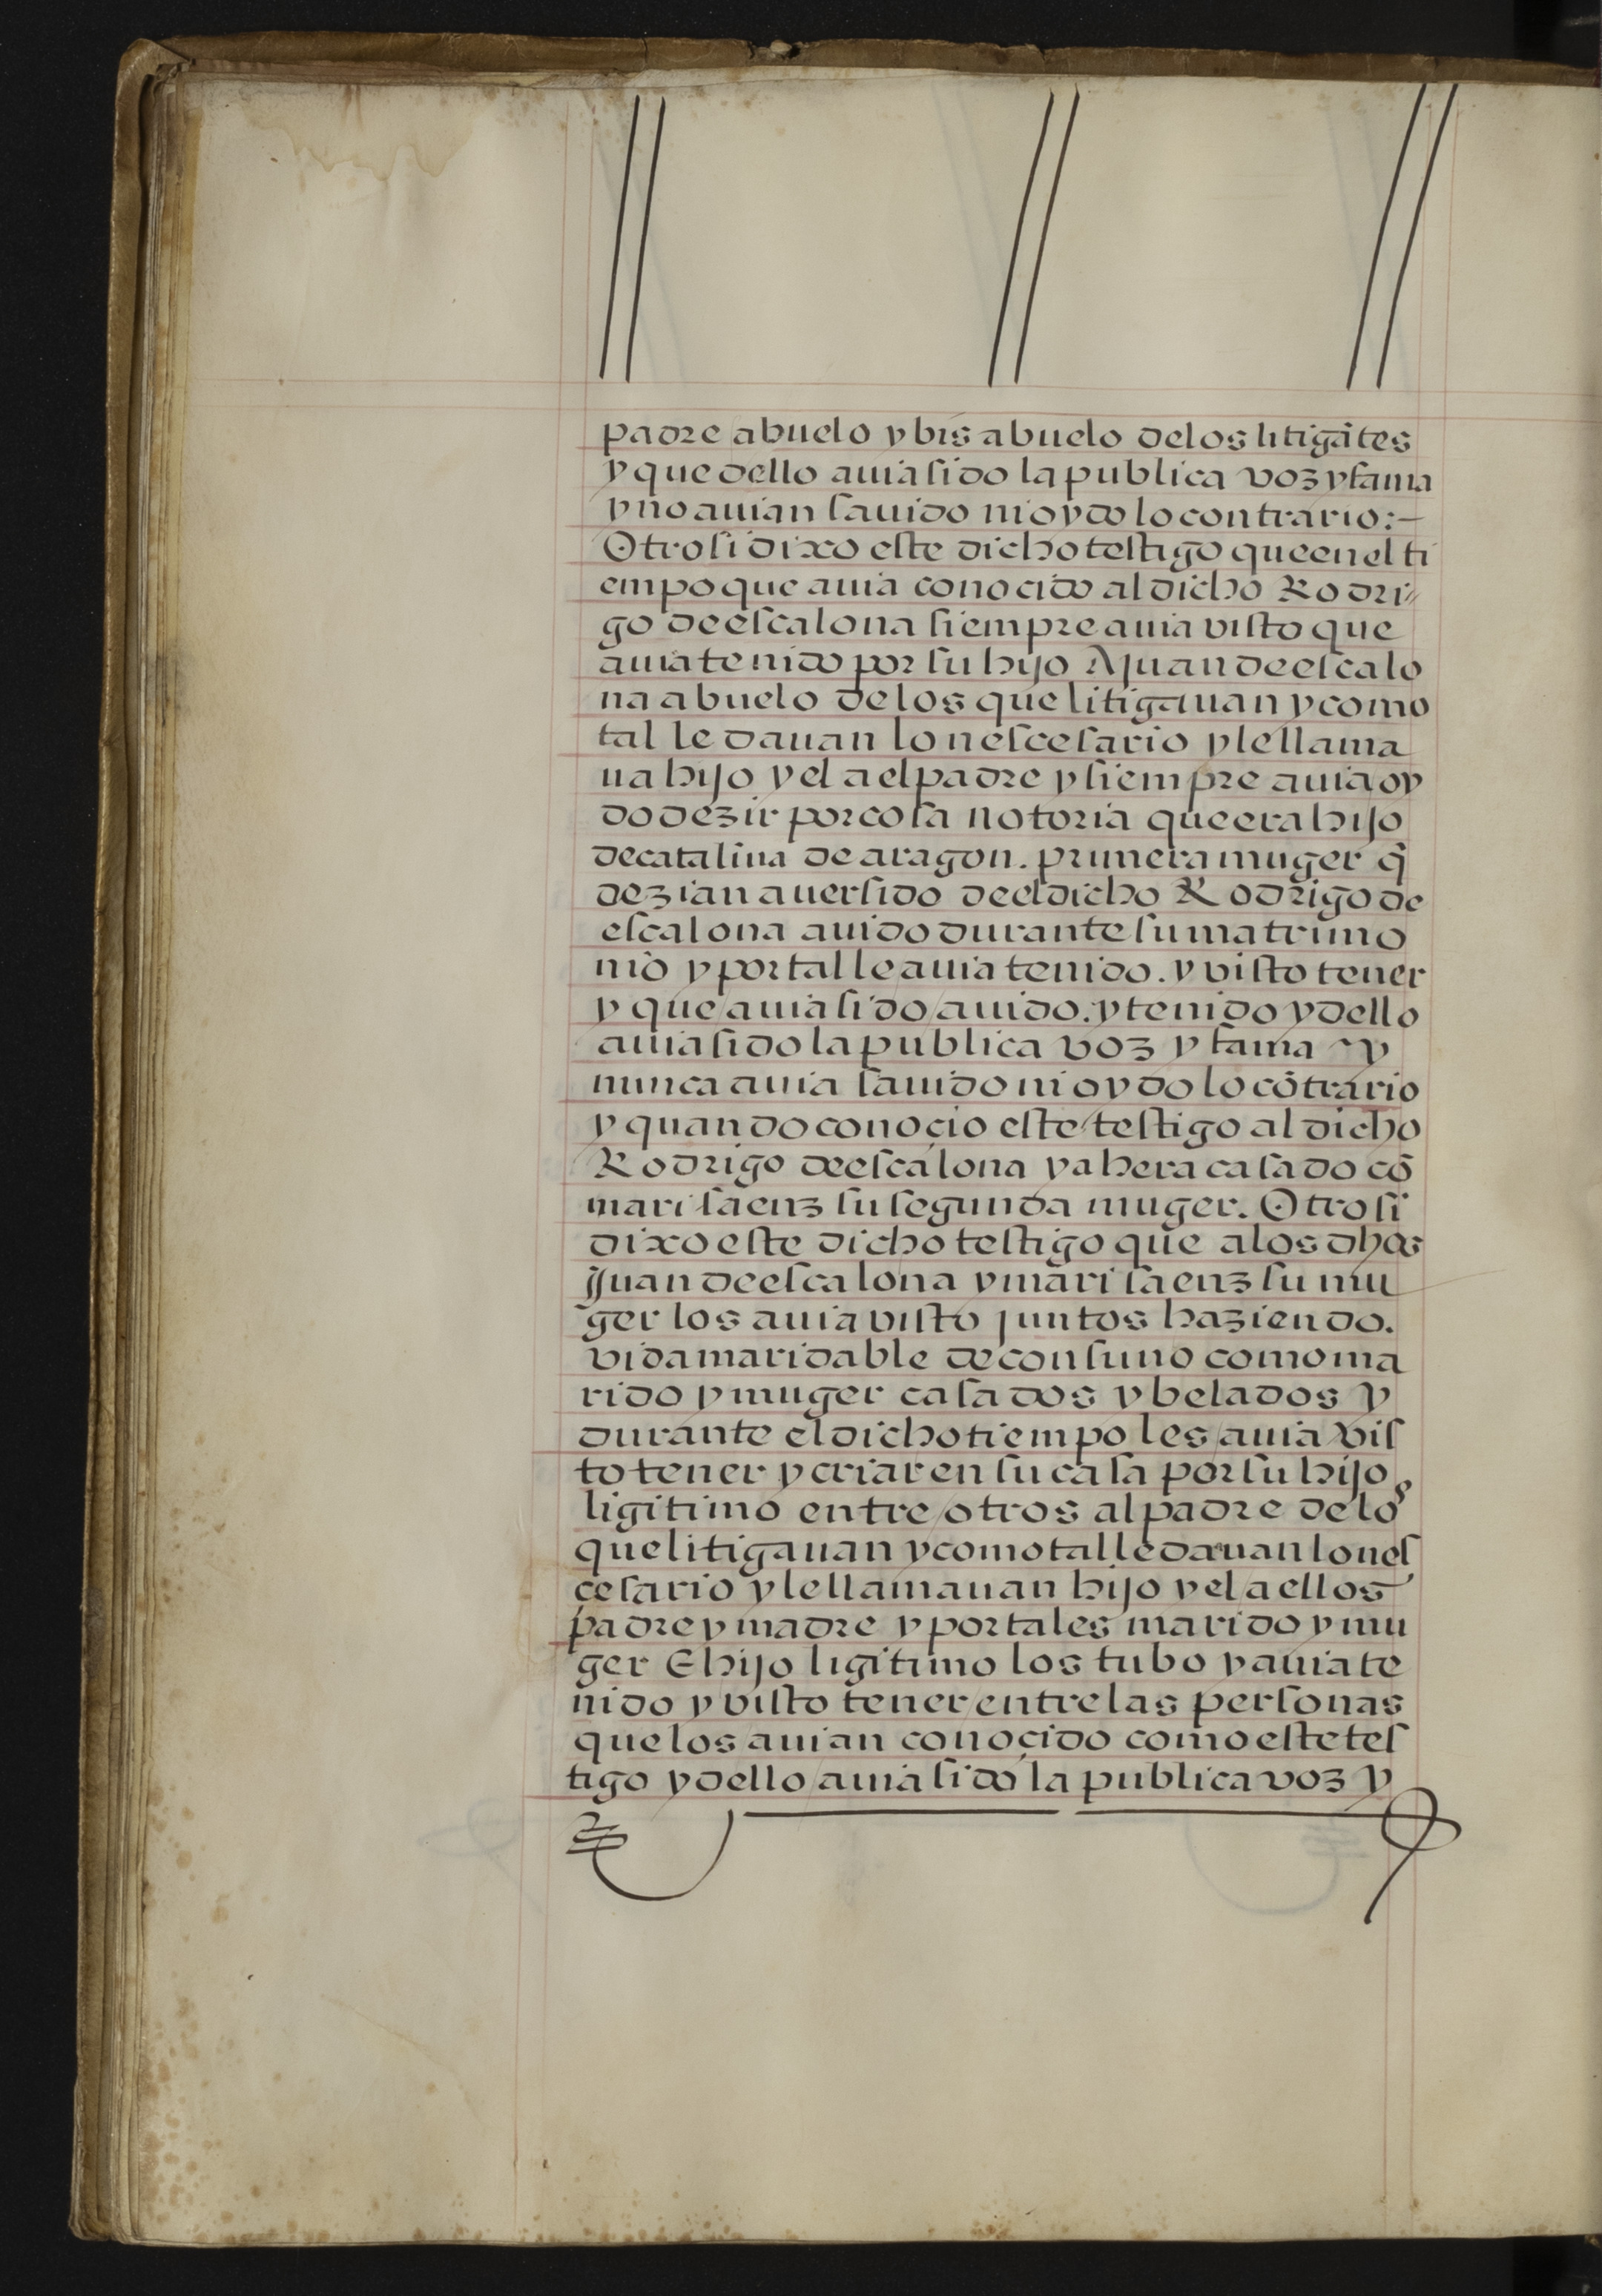 padre abuelo y bis abuelo de los litigãtes
y que dello auia sido la publica voz y fama
y no auian sauido ni oydo lo contrario:-
Otrosi dixo este dicho testigo que en el ti
empo que auia conocido al dicho Rodri
go de escalona siempre auia visto que
auia tenido por su hijo A Juan de escalo
na abuelo de los que litigauan y como
tal le dauan lo nescesario y le llama
ua hijo y el a el padre y siempre auia oy
do dezir por cosa notoria que era hijo
de catalina de aragon. primera muger q̃
dezian auer sido de el dicho Rodrigo de
escalona auido durante su matrimo
nio y por tal le auia tenido. y visto tener
y que auia sido auido. y tenido y dello
auia sido la publica voz y fama y
nunca auia sauido ni oydo lo cõtrario
y quando conoçio este testigo al dicho
Rodrigo de escalona ya hera casado cõ
mari saenz su segunda muger. Otrosi
dixo este dicho testigo que a los dhos
Juan de escalona y mari saenz su mu
ger los auia visto juntos haziendo.
vida maridable de consuno como ma
rido y muger casados y belados y
durante el dicho tiempo les auia vis
to tener y criar en su casa por su hijo
ligitimo entre otros al padre de los
que litigauan y como tal le dauan lo nes
çesario y le llamauan hijo y el a ellos
padre y madre y por tales marido y mu
ger E hijo ligitimo los tubo y auia te
nido y visto tener entre las personas
que los auian conoçido como este tes
tigo y dello auia sido la publica voz y